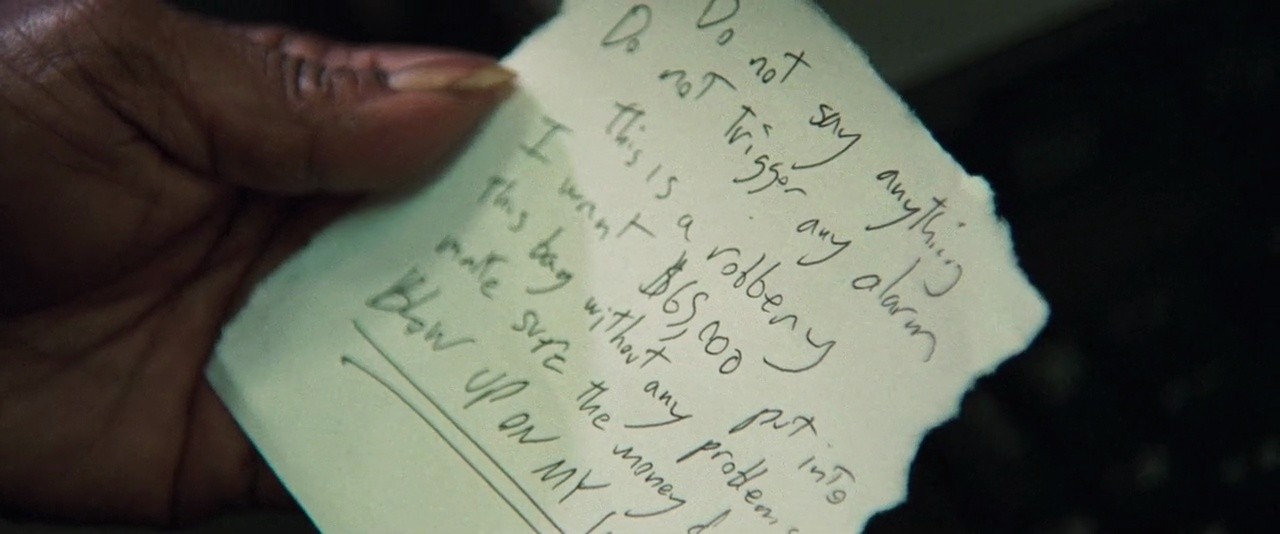 Do not say anything
Do not Trigger any alarm
this is a robbery
I want $65,000 put into
this bag without any problems
make sure the money
Blow UP ON MY